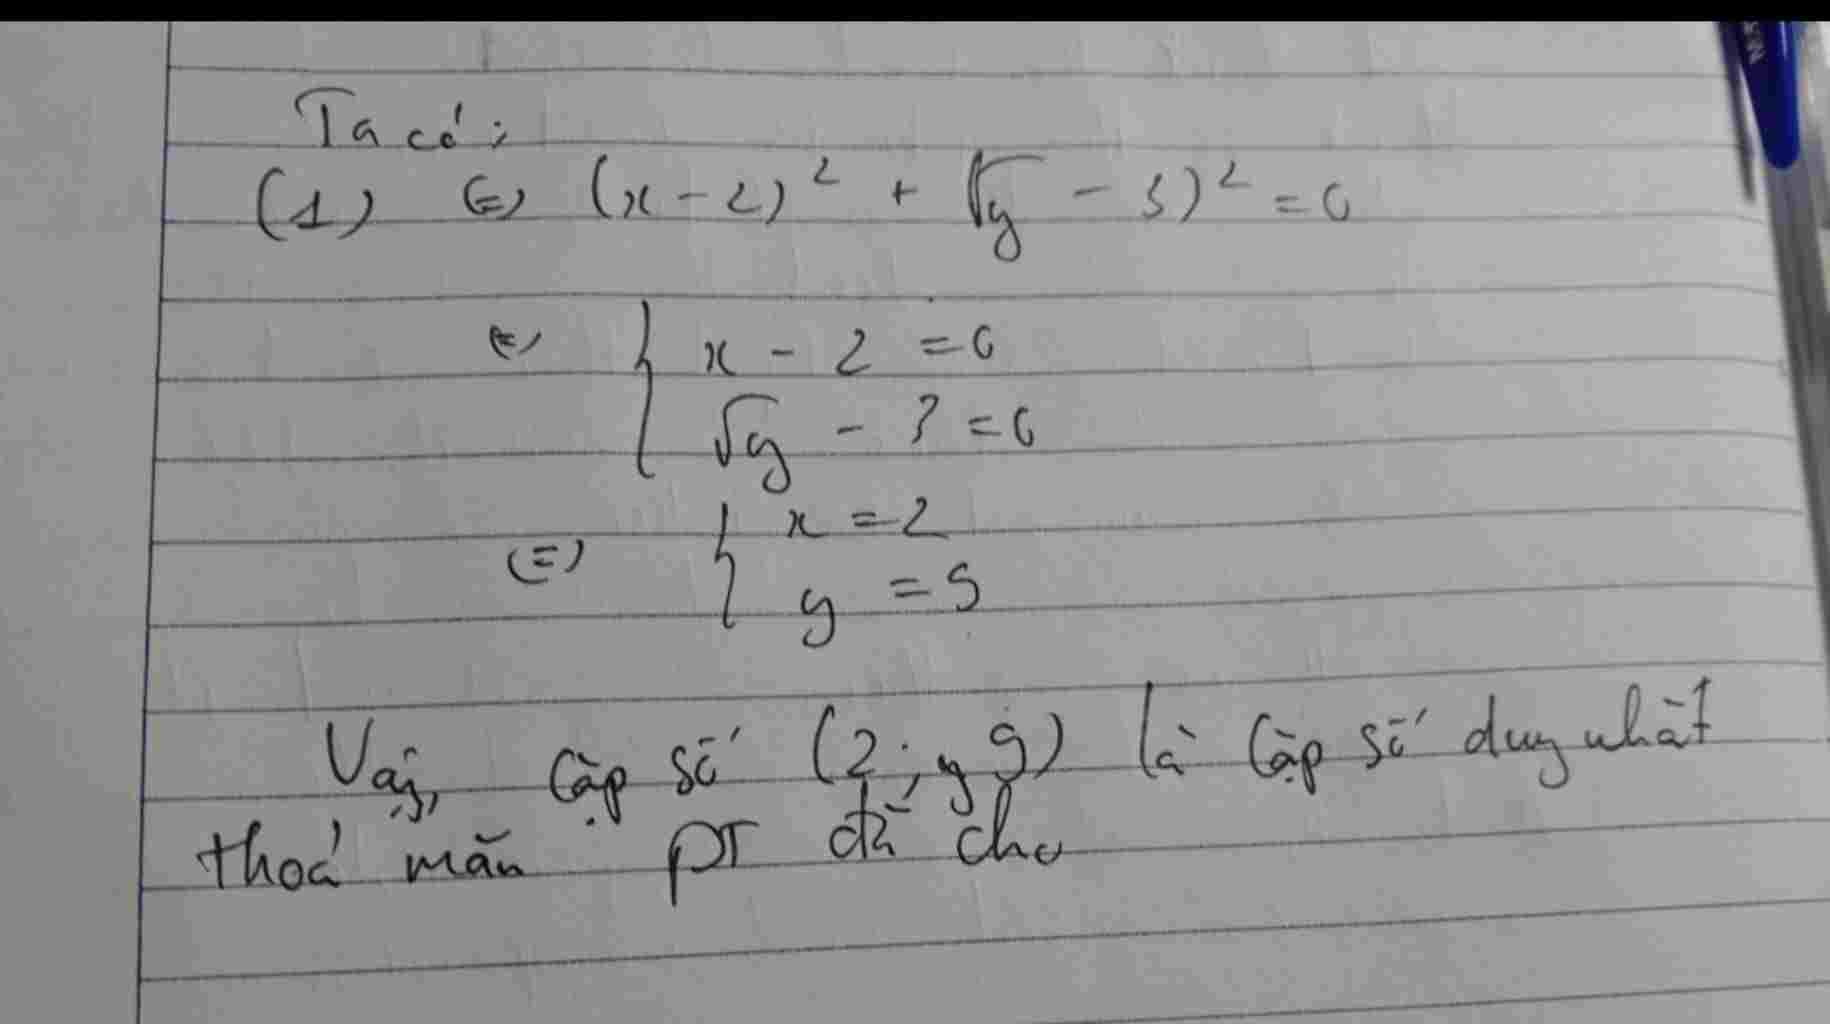 Ta có:
(1) ⇔ (x - 2)² + (√y - 3)² = 0
⇔ { x - 2 = 0
√y - 3 = 0
⇔ { x = 2
y = 9
Vậy, cặp số (2; y 9) là cặp số duy nhất
thoả mãn PT đã cho